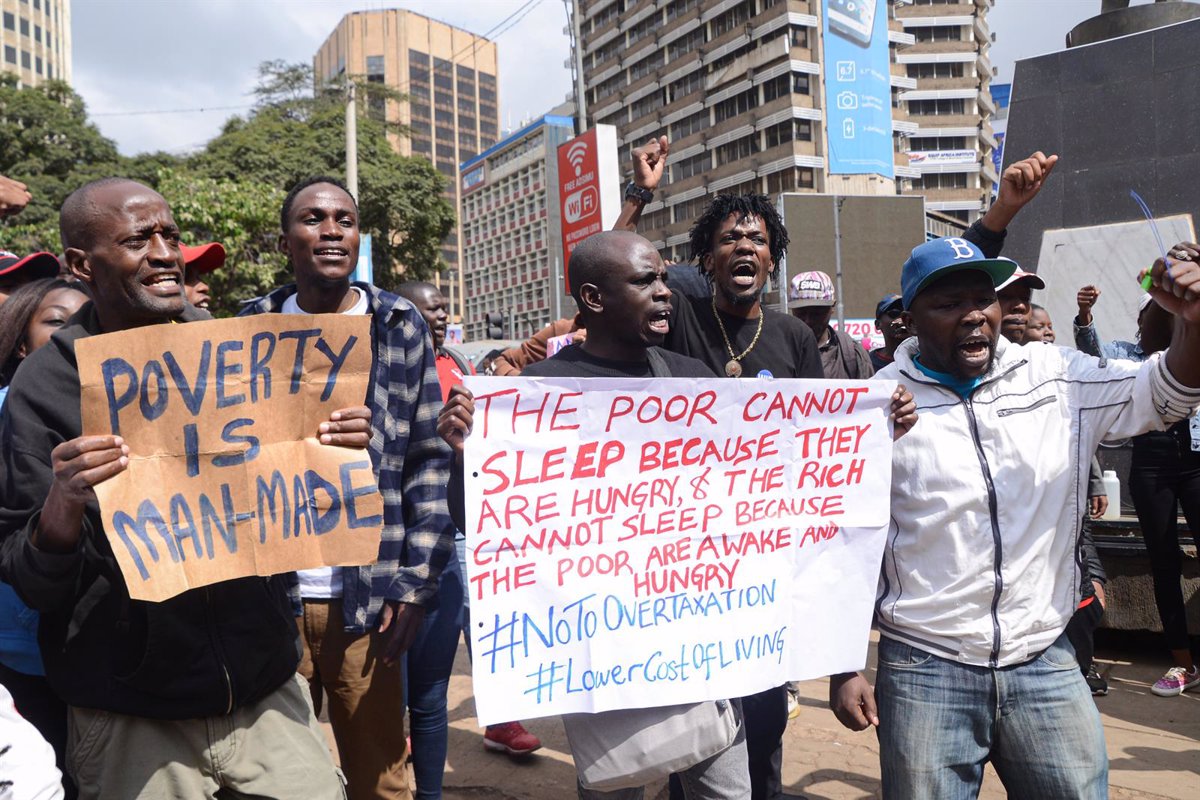 POVERTY
IS
MAN-MADE
THE POOR CANNOT
SLEEP BECAUSE THEY
ARE HUNGRY, & THE RICH
CANNOT SLEEP BECAUSE
THE POOR ARE AWAKE AND
HUNGRY
#NOTOOVERTAXATION
#LOWERCOSTOFLIVING
FREE
WiFi
6.7
B
720